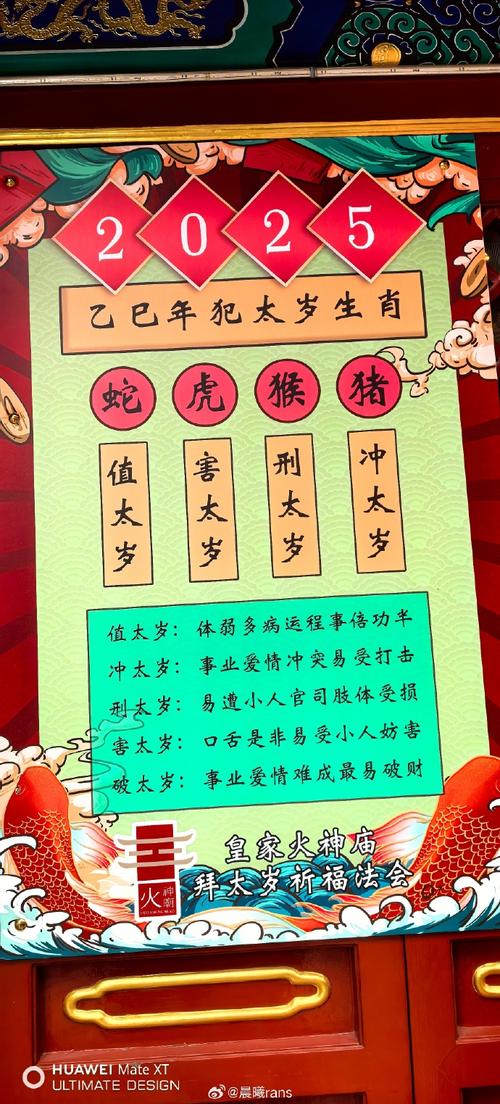 2025
乙巳年犯太岁生肖
蛇 虎 猴 猪
值太岁
害太岁
刑太岁
冲太岁
值太岁：体弱多病运程事倍功半
冲太岁：事业爱情冲突易受打击
刑太岁：易遭小人官司肢体受损
害太岁：口舌是非易受小人妨害
破太岁：事业爱情难成最易破财
火神廟
皇家火神庙
拜太岁祈福法会
HUAWEI Mate XT
ULTIMATE DESIGN
@晨曦rans